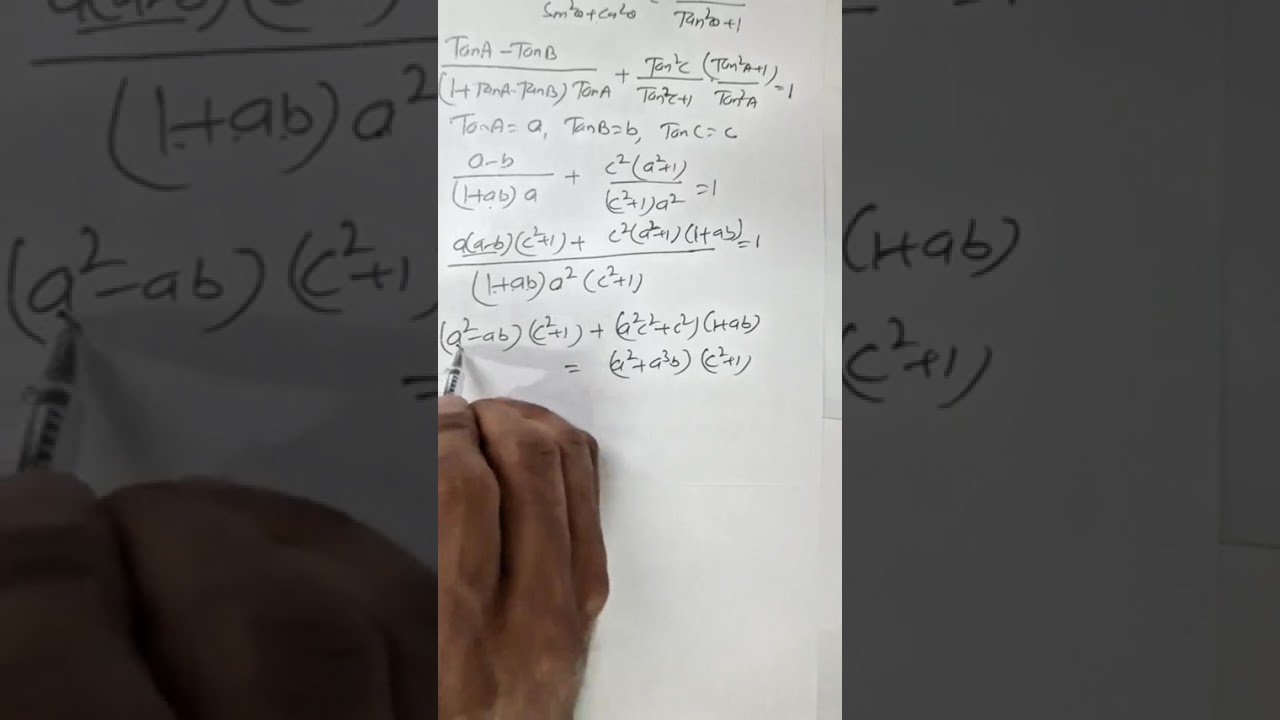 Sin²θ+cos²θ = Tan²θ+1
TanA-TanB / (1+TanA·TanB) TanA + Tan²C / Tan²C+1 · (Tan²A+1) / Tan²A = 1
TanA = a, TanB = b, TanC = c
a-b / (1+ab) a + c²(a²+1) / (c²+1)a² = 1
a(a-b)(c²+1) + c²(a²+1)(1+ab) / (1+ab) a² (c²+1) = 1
(a²-ab)(c²+1) + (a²c²+c²)(1+ab)
= (a²+a³b)(c²+1)